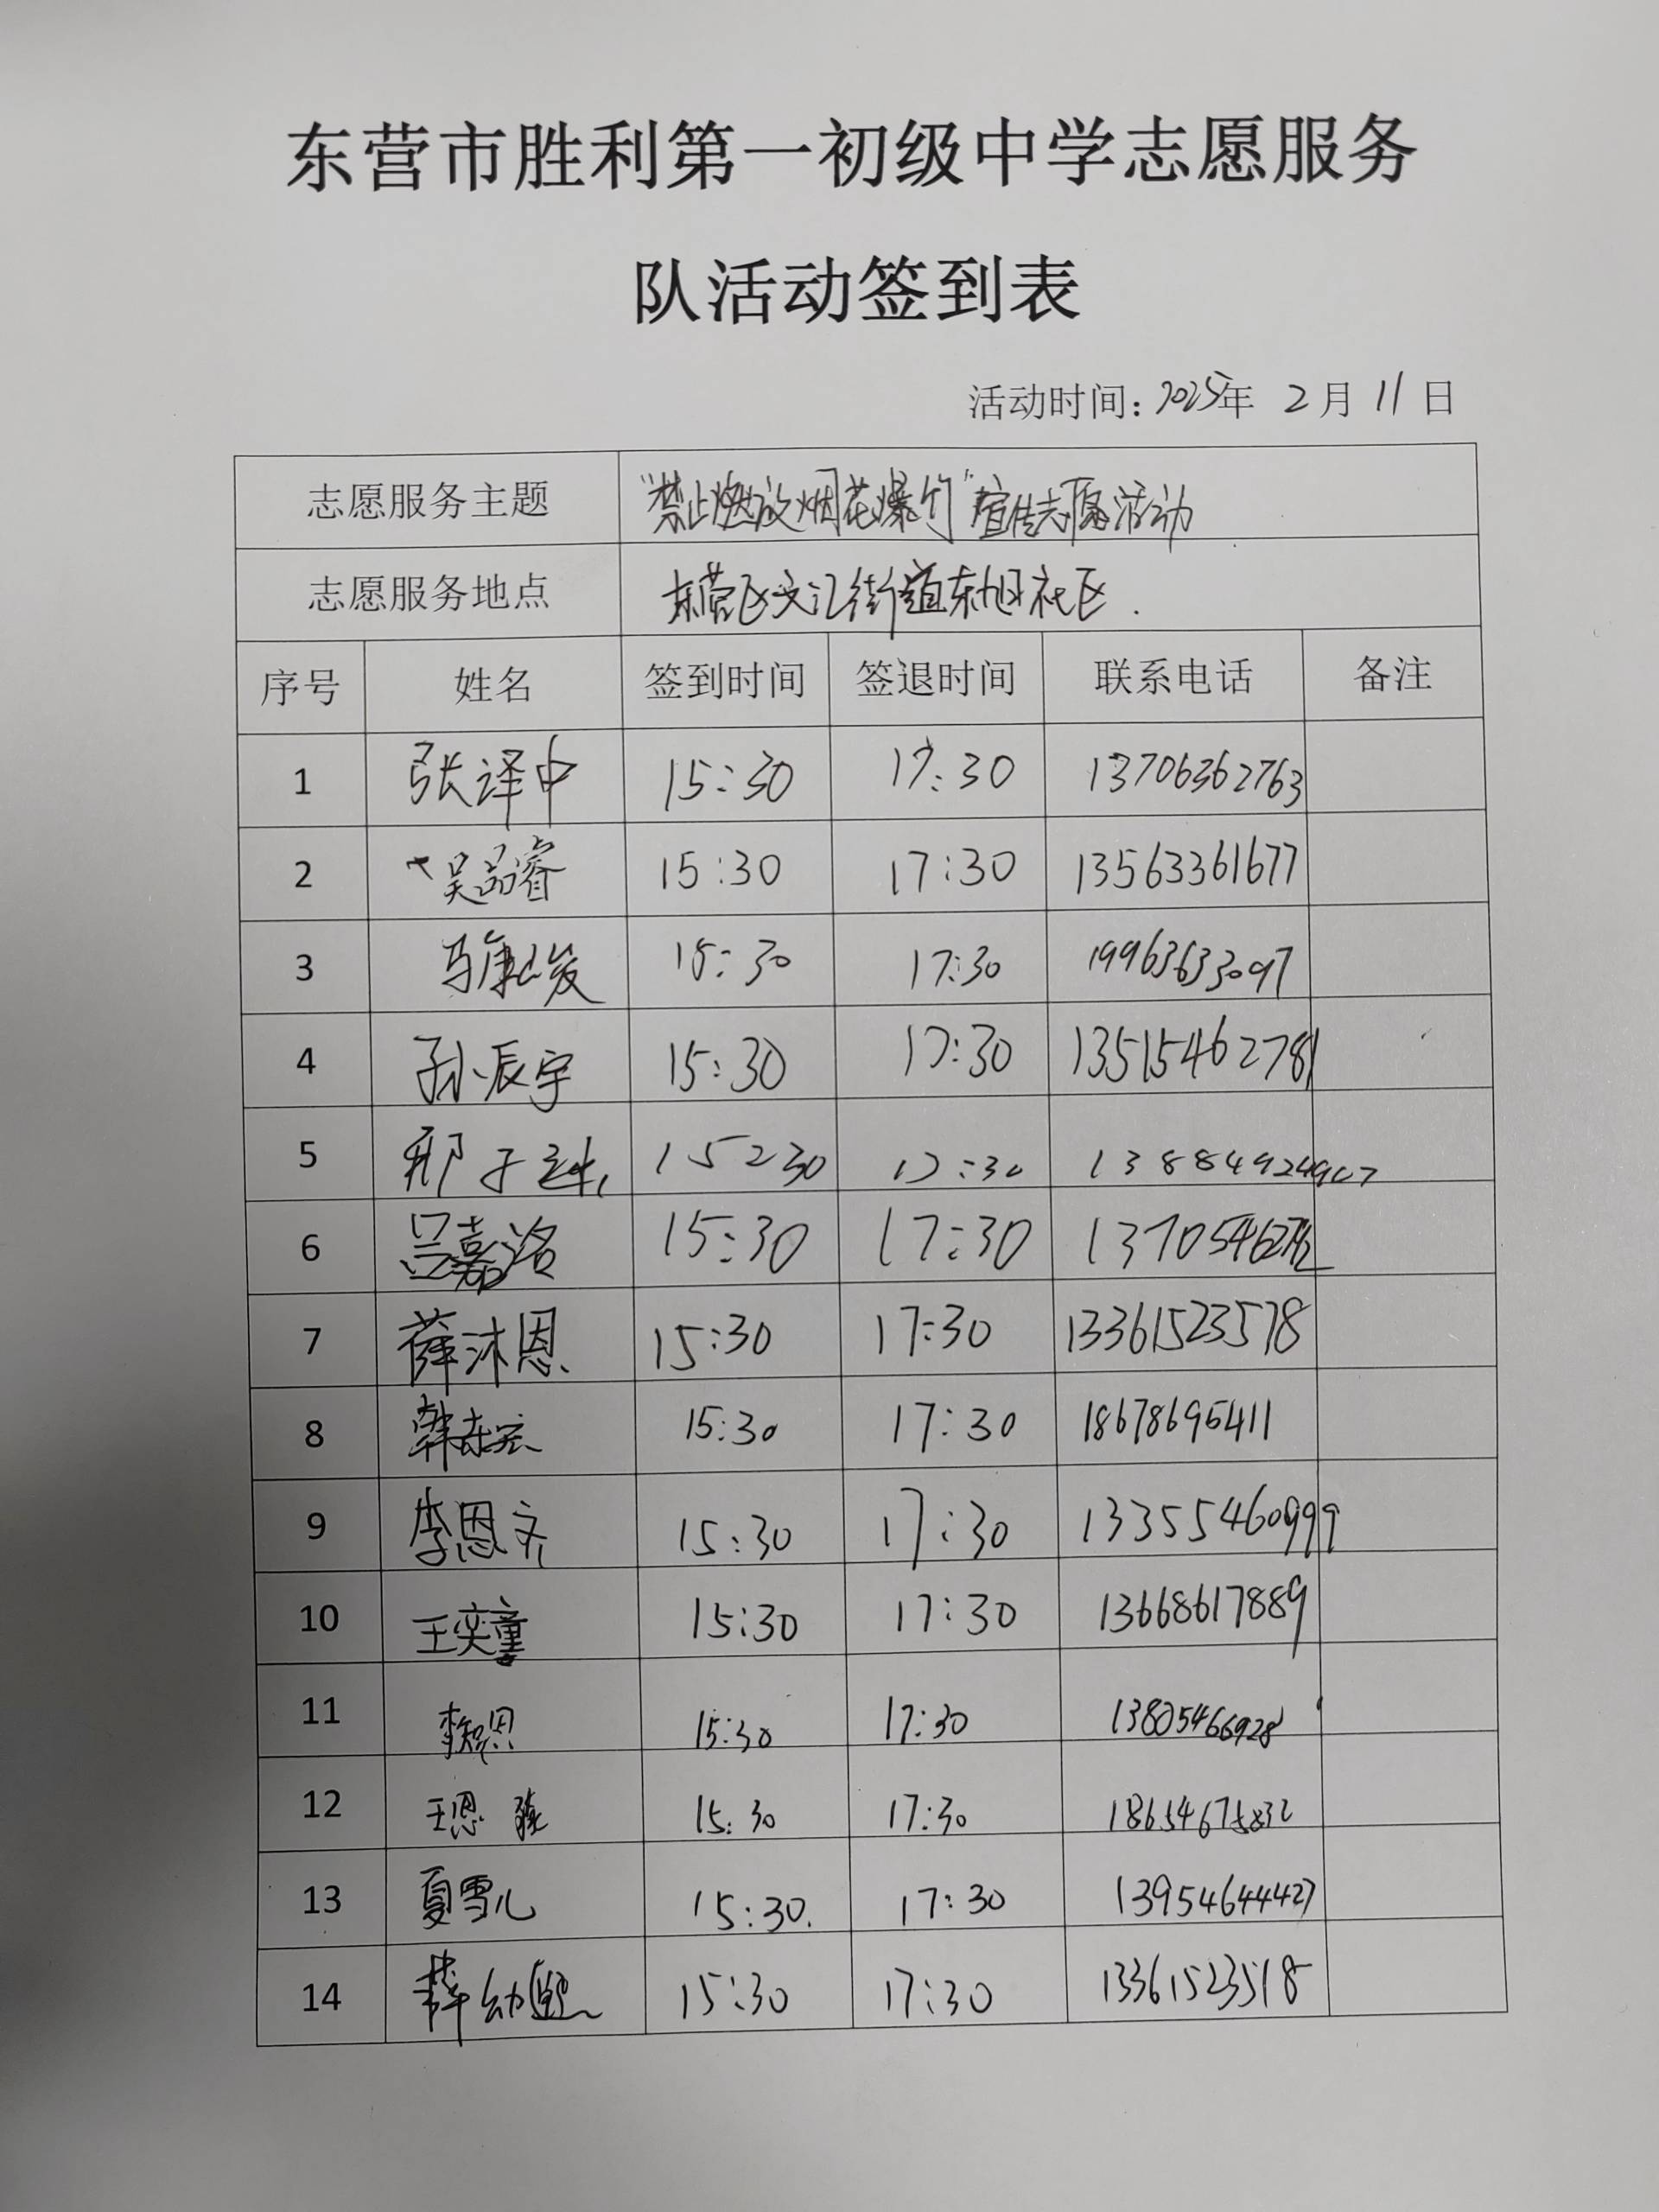 东营市胜利第一初级中学志愿服务
队活动签到表
活动时间：2025年 2月 11日
志愿服务主题 "禁止燃放烟花爆竹"宣传志愿活动
志愿服务地点 东营区文汇街道东旭社区.
序号 姓名 签到时间 签退时间 联系电话 备注
1 张译中 15:30 17:30 13706362763
2 吴品睿 15:30 17:30 13563361677
3 15:30 17:30 19963633097
4 孙辰宇 15:30 17:30 13515462781
5 15:30 17:30
6 吕嘉洛 15:30 17:30
7 薛沐恩 15:30 17:30 13361523578
8 15:30 17:30 18678695411
9 李恩齐 15:30 17:30 13355460999
10 王奕童 15:30 17:30 13668617889
11 15:30 17:30 13805466928
12 15:30 17:30
13 夏雪儿 15:30. 17:30 13954644427
14 15:30 17:30 13361523518